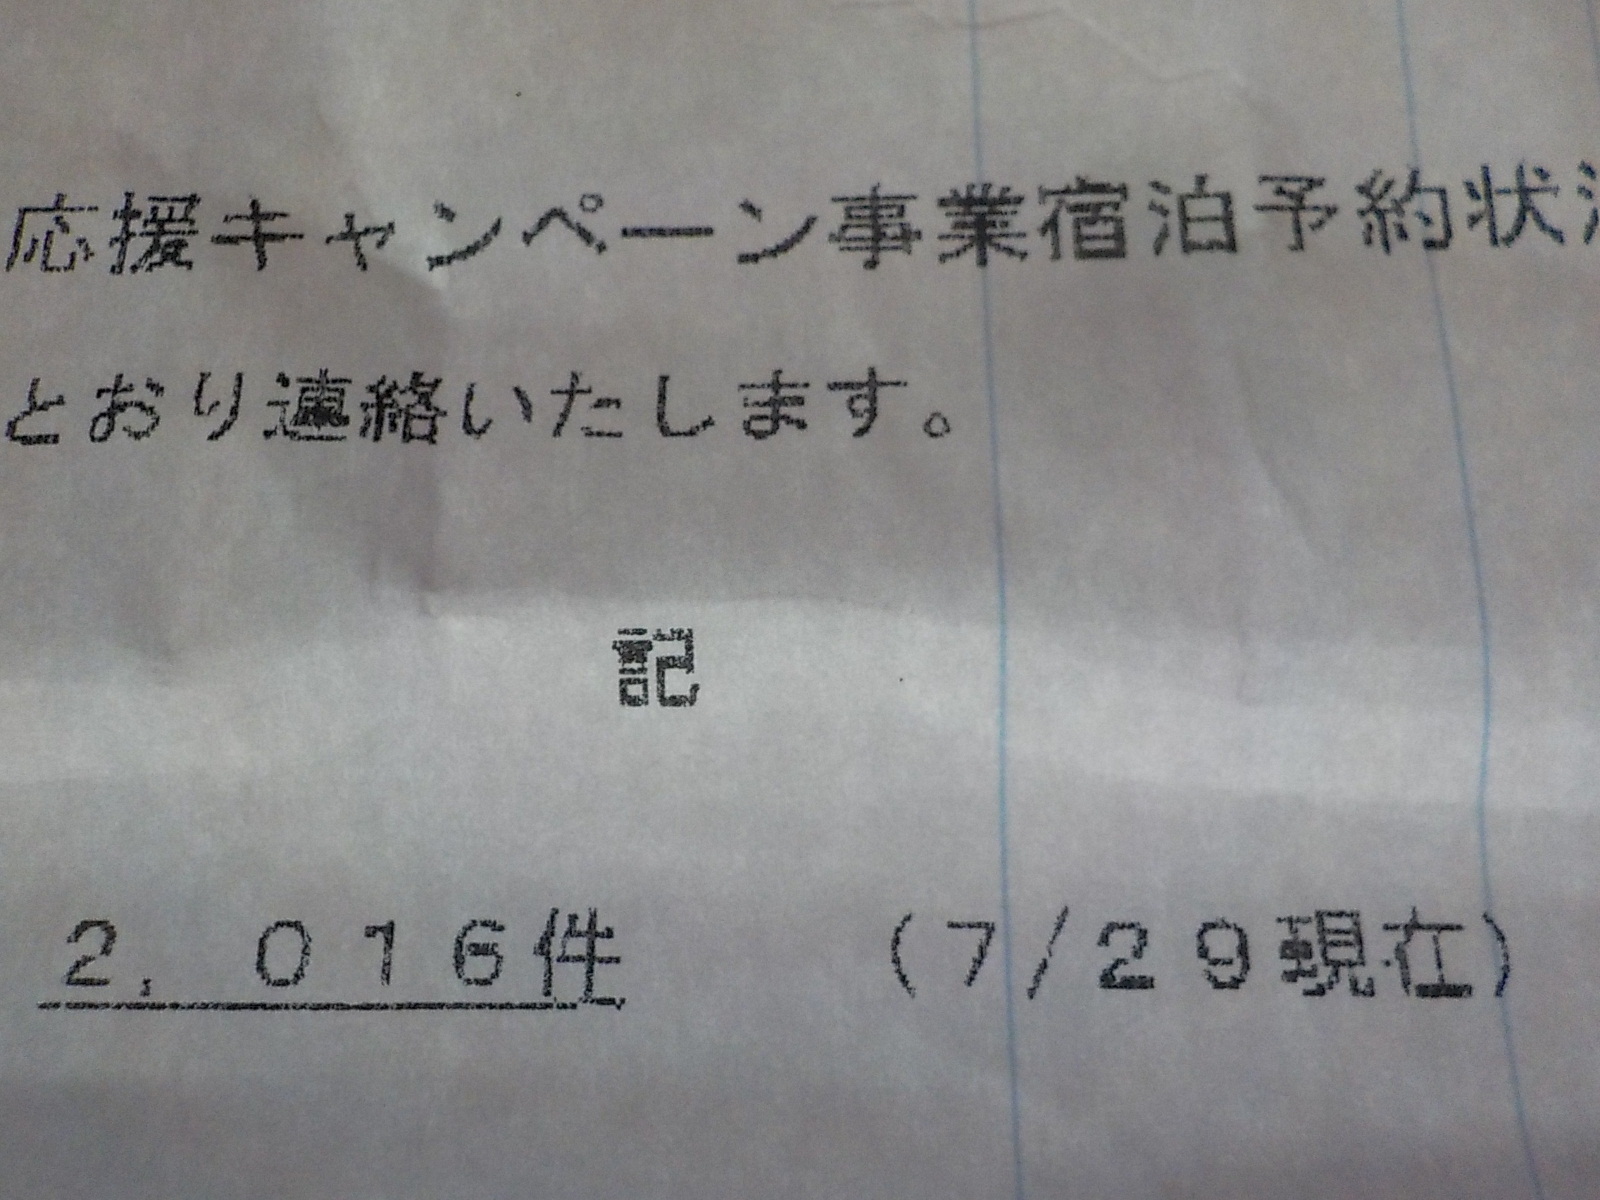 応援キャンペーン事業宿泊予約状
とおり連絡いたします。
記
2，016件 (7/29現在)